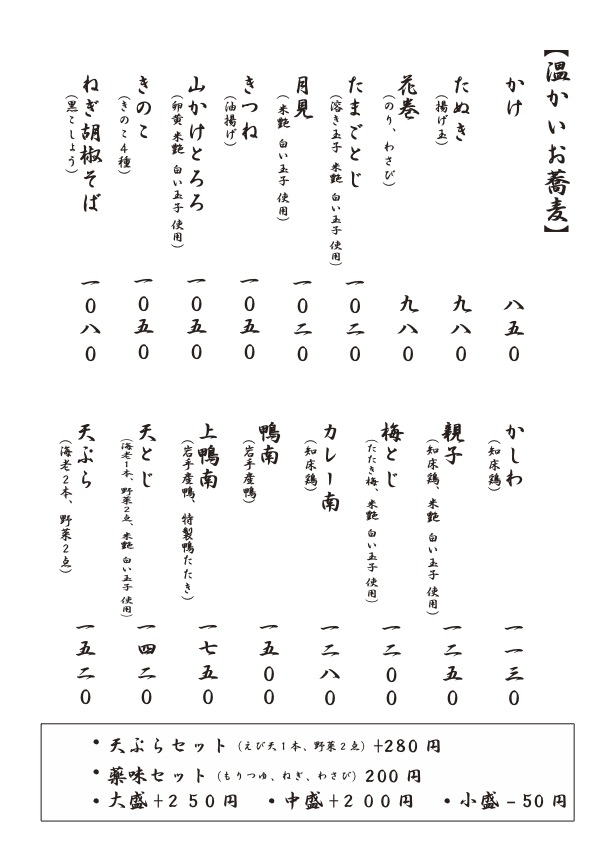 【温かいお蕎麦】
かけ 八五０
たぬき 九八０
（揚げ玉）
花巻 九八０
（のり、わさび）
たまごとじ 一０二０
（溶き玉子 米艶 白い玉子 使用）
月見 一０二０
（米艶 白い玉子 使用）
きつね 一０五０
（油揚げ）
山かけとろろ 一０五０
（卵黄 米艶 白い玉子 使用）
きのこ 一０五０
（きのこ４種）
ねぎ胡椒そば 一０八０
（黒こしょう）
かしわ 一一三０
（知床鶏）
親子 一二五０
（知床鶏、米艶 白い玉子 使用）
梅とじ 一二００
（たたき梅、米艶 白い玉子 使用）
カレー南 一二八０
（知床鶏）
鴨南 一五００
（岩手産鴨）
上鴨南 一七五０
（岩手産鴨、特製鴨たたき）
天とじ 一四二０
（海老１本、野菜２点、米艶 白い玉子 使用）
天ぷら 一五二０
（海老２本、野菜２点）
・天ぷらセット（えび天１本、野菜２点）+280 円
・薬味セット（もりつゆ、ねぎ、わさび）200 円
・大盛＋２５０円 ・中盛＋２００円 ・小盛－50 円